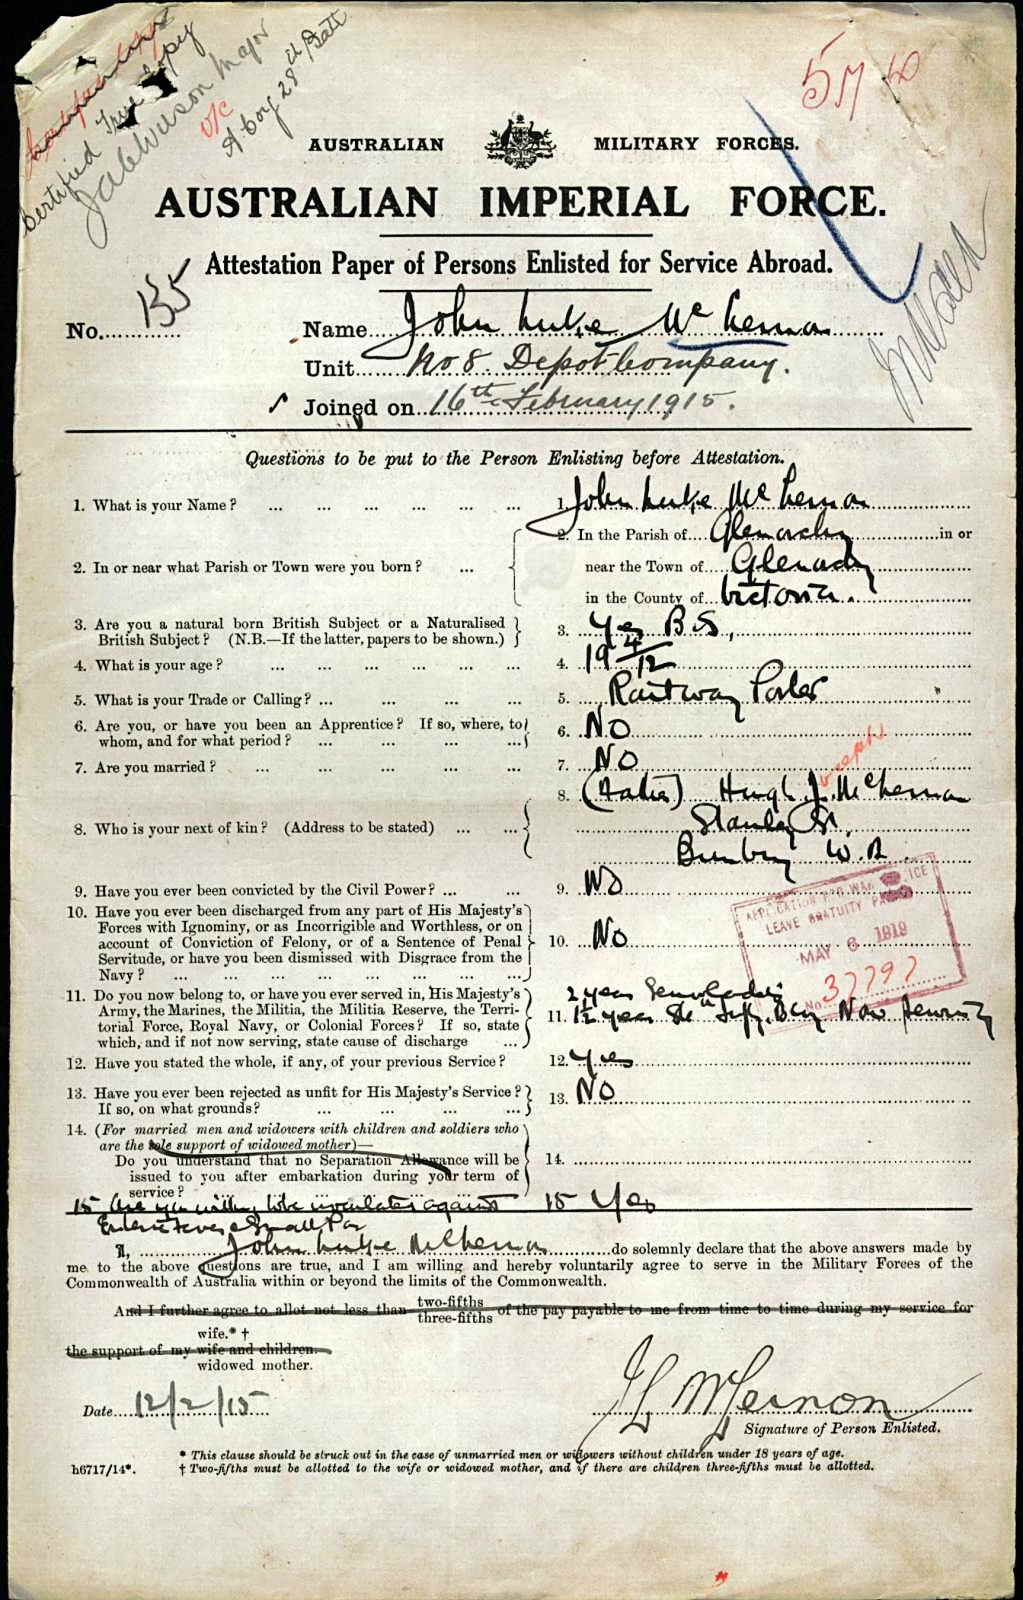 Certified True Copy
Major
O/C
A Coy 28th Batt
AUSTRALIAN MILITARY FORCES.
AUSTRALIAN IMPERIAL FORCE.
Attestation Paper of Persons Enlisted for Service Abroad.
No. 155 Name John Luke McLernon
Unit No 8. Depot Company.
Joined on 16th February 1915.
Questions to be put to the Person Enlisting before Attestation.
1. What is your Name? ... 1. John Luke McLernon
2. In or near what Parish or Town were you born? ... 2. In the Parish of in or
near the Town of
in the County of Victoria.
3. Are you a natural born British Subject or a Naturalised
British Subject? (N.B.—If the latter, papers to be shown.) 3. Yes B.S.
4. What is your age? ... 4. 19 4/12
5. What is your Trade or Calling? ... 5. Railway Porter
6. Are you, or have you been an Apprentice? If so, where, to
whom, and for what period? ... 6. No
7. Are you married? ... 7. No
8. Who is your next of kin? (Address to be stated) ... 8. (Father) Hugh J. McLernon
Joseph
Stanley St.
Bunbury W.A.
9. Have you ever been convicted by the Civil Power? ... 9. No
10. Have you ever been discharged from any part of His Majesty's
Forces with Ignominy, or as Incorrigible and Worthless, or on
account of Conviction of Felony, or of a Sentence of Penal
Servitude, or have you been dismissed with Disgrace from the
Navy? ... 10. No
APPLICATION FOR WAR SERVICE
LEAVE GRATUITY
MAY 6 1919
No. 37797
11. Do you now belong to, or have you ever served in, His Majesty's
Army, the Marines, the Militia, the Militia Reserve, the Terri-
torial Force, Royal Navy, or Colonial Forces? If so, state
which, and if not now serving, state cause of discharge ... 11. 2 years Senior Cadets
1½ years Now serving
12. Have you stated the whole, if any, of your previous Service? 12. Yes
13. Have you ever been rejected as unfit for His Majesty's Service?
If so, on what grounds? ... 13. No
14. (For married men and widowers with children and soldiers who
are the sole support of widowed mother)—
Do you understand that no Separation Allowance will be
issued to you after embarkation during your term of
service? ... 14.
15 Are you willing to be inoculated against 15 Yes
Enteric Fever & Small Pox
I, John Luke McLernon do solemnly declare that the above answers made by
me to the above questions are true, and I am willing and hereby voluntarily agree to serve in the Military Forces of the
Commonwealth of Australia within or beyond the limits of the Commonwealth.
And I further agree to allot not less than two-fifths three-fifths of the pay payable to me from time to time during my service for
wife.* †
the support of my wife and children.
widowed mother.
Date 12/2/15 J L McLernon
Signature of Person Enlisted.
* This clause should be struck out in the case of unmarried men or widowers without children under 18 years of age.
h6717/14*. † Two-fifths must be allotted to the wife or widowed mother, and if there are children three-fifths must be allotted.